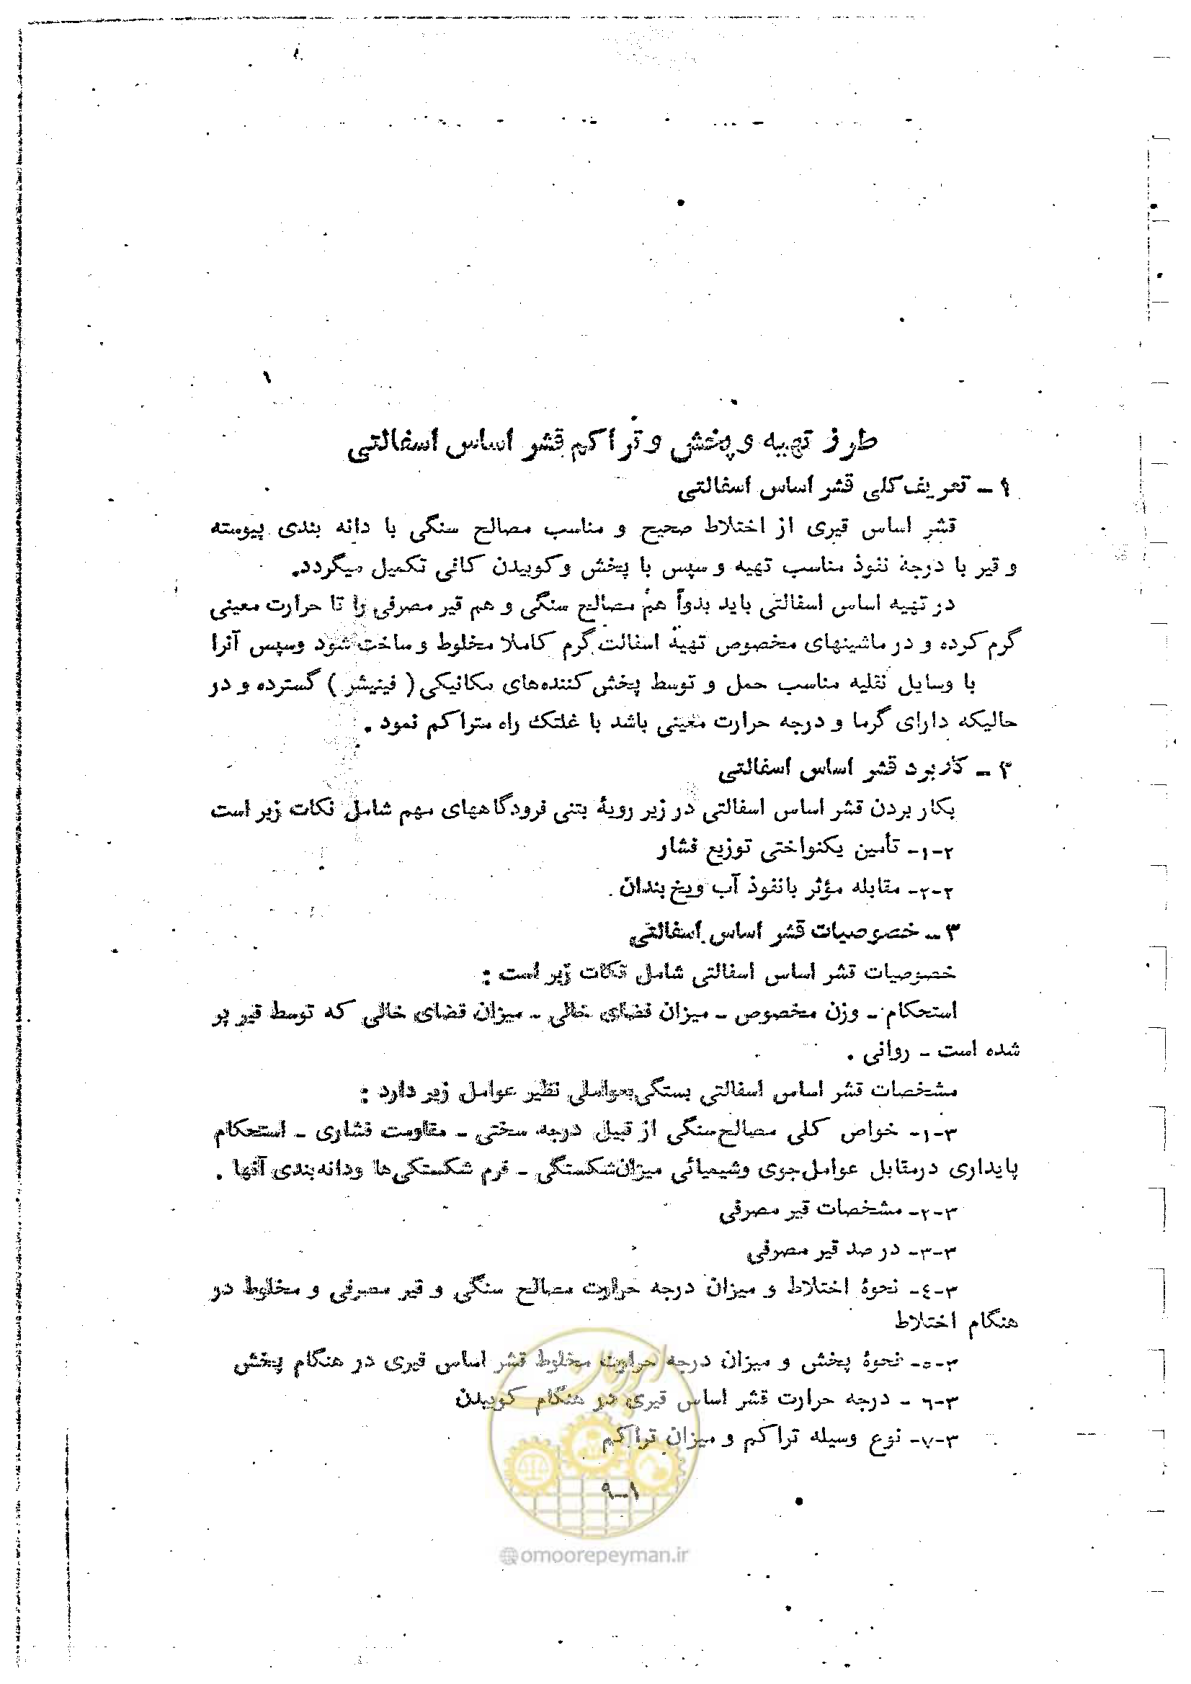 طرز تهیه و پخش و تراکم قشر اساس اسفالتی
۱ – تعریف کلی قشر اساس اسفالتی
قشر اساس قیری از اختلاط صحیح و مناسب مصالح سنگی با دانه بندی پیوسته
و قیر با درجهٔ نفوذ مناسب تهیه و سپس با پخش و کوبیدن کافی تکمیل میگردد.
در تهیه اساس اسفالتی باید بدواً هم مصالح سنگی و هم قیر مصرفی را تا حرارت معینی
گرم کرده و در ماشینهای مخصوص تهیهٔ اسفالت گرم کاملا مخلوط و ساخت شود وسپس آنرا
با وسایل نقلیه مناسب حمل و توسط پخش کننده‌های مکانیکی ( فینیشر ) گسترده و در
حالیکه دارای گرما و درجه حرارت معینی باشد با غلتک راه متراکم نمود .
۲ – کاربرد قشر اساس اسفالتی
بکار بردن قشر اساس اسفالتی در زیر رویهٔ بتنی فرودگاههای مهم شامل نکات زیر است
۲-۱- تأمین یکنواختی توزیع فشار
۲-۲- مقابله مؤثر با نفوذ آب ویخ بندان .
۳ – خصوصیات قشر اساس اسفالتی
خصوصیات قشر اساس اسفالتی شامل نکات زیر است :
استحکام – وزن مخصوص – میزان فضای خالی – میزان فضای خالی که توسط قیر پر
شده است – روانی .
مشخصات قشر اساس اسفالتی بستگی بعواملی نظیر عوامل زیر دارد :
۳-۱- خواص کلی مصالح سنگی از قبیل درجه سختی – مقاومت فشاری – استحکام
پایداری درمقابل عوامل جوی وشیمیائی میزان شکستگی – فرم شکستگی‌ها ودانه بندی آنها .
۳-۲- مشخصات قیر مصرفی
۳-۳- در صد قیر مصرفی
۳-٤- نحوهٔ اختلاط و میزان درجه حرارت مصالح سنگی و قیر مصرفی و مخلوط در
هنگام اختلاط
۳-۵- نحوهٔ پخش و میزان درجه حرارت مخلوط قشر اساس قیری در هنگام پخش
۳-۶ – درجه حرارت قشر اساس قیری در هنگام کوبیدن
۳-۷- نوع وسیله تراکم و میزان تراکم
۹-۱
@omoorepeyman.ir